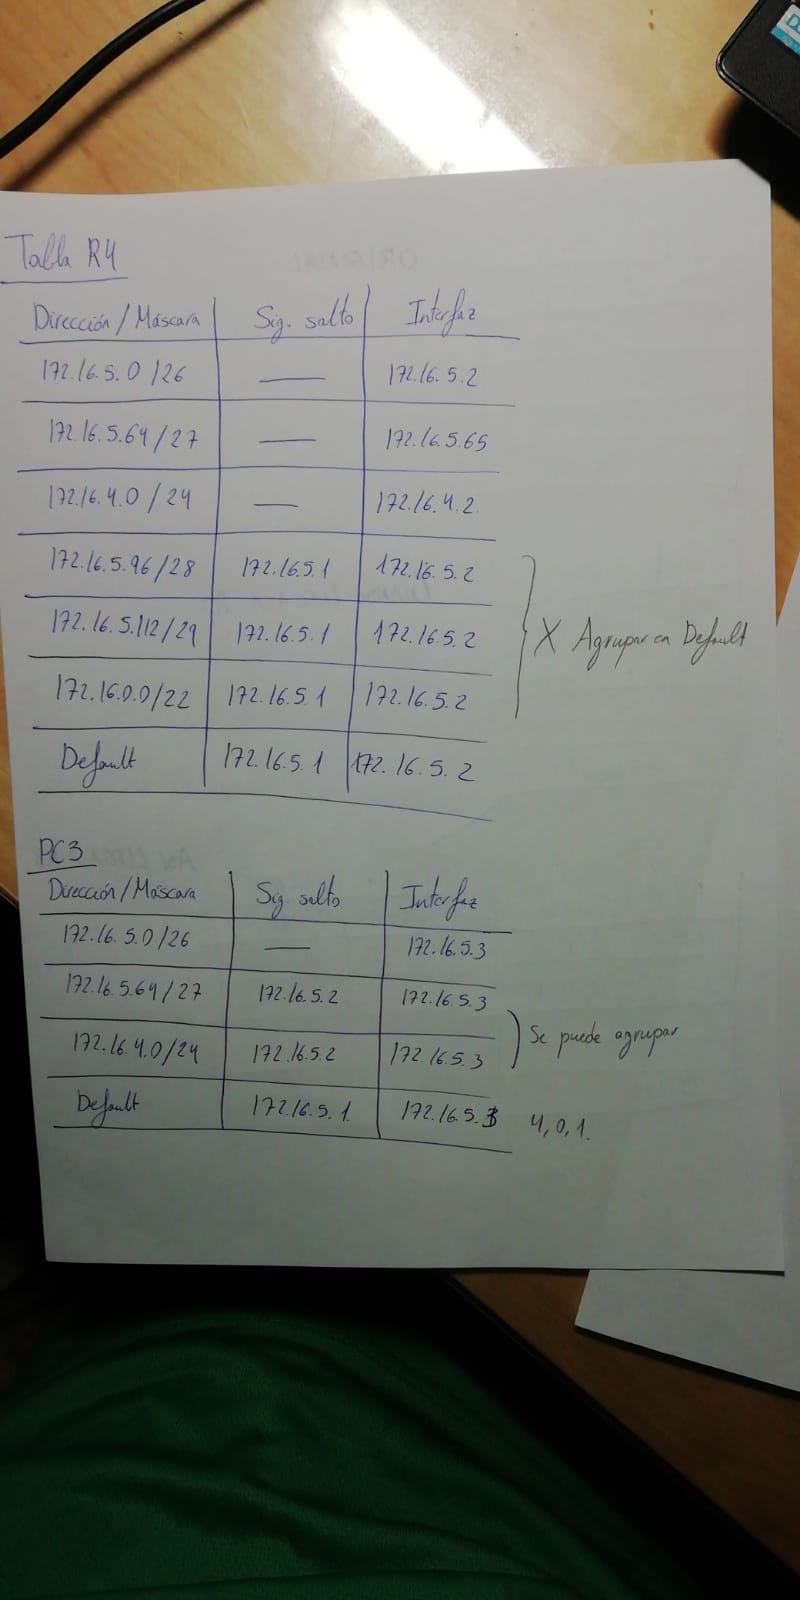 Tabla R4
Dirección/Máscara Sig. salto Interfaz
172.16.5.0/26 — 172.16.5.2
172.16.5.64/27 — 172.16.5.65
172.16.4.0/24 — 172.16.4.2
172.16.5.96/28 172.16.5.1 172.16.5.2
172.16.5.112/29 172.16.5.1 172.16.5.2
X Agrupar en Default
172.16.0.0/22 172.16.5.1 172.16.5.2
Default 172.16.5.1 172.16.5.2
PC3
Dirección/Máscara Sig. salto Interfaz
172.16.5.0/26 — 172.16.5.3
172.16.5.64/27 172.16.5.2 172.16.5.3
Se puede agrupar
172.16.4.0/24 172.16.5.2 172.16.5.3
Default 172.16.5.1 172.16.5.3
4,0,1.